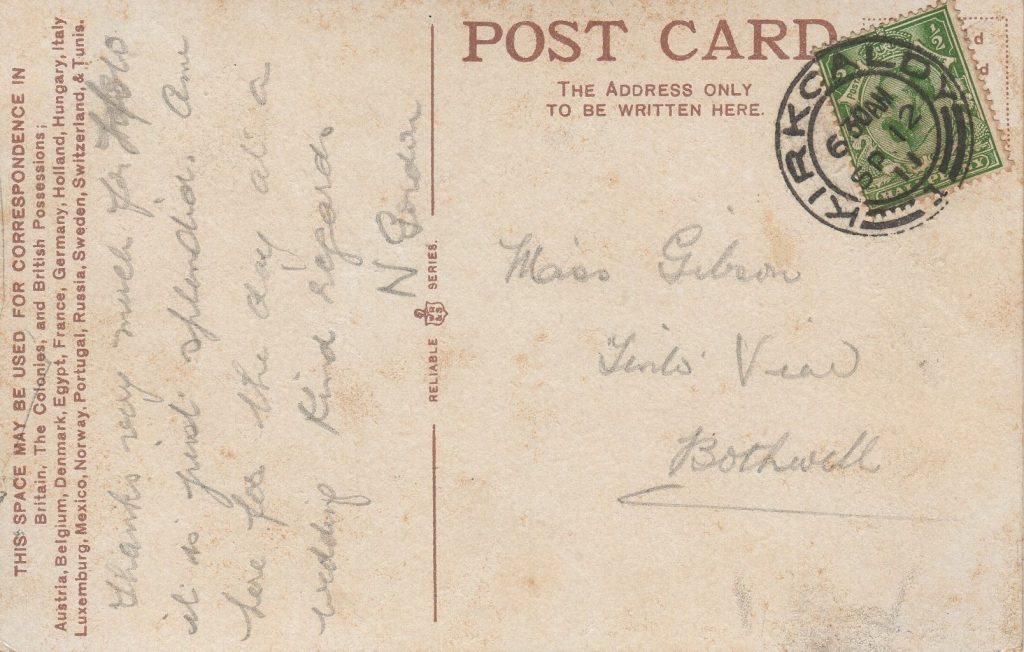 THIS SPACE MAY BE USED FOR CORRESPONDENCE IN
Britain, The Colonies, and British Possessions;
Austria, Belgium, Denmark, Egypt, France, Germany, Holland, Hungary, Italy
Luxemburg, Mexico, Norway, Portugal, Russia, Sweden, Switzerland, & Tunis.
Thanks very much for
it is just splendid. Am
here for the day at a
wedding Kind regards
N
RELIABLE WR&S SERIES.
POST CARD
THE ADDRESS ONLY
TO BE WRITTEN HERE.
KIRKCALDY
6 30AM
SP 12
11
1/2
HALF
Miss Gibson
View
Bothwell